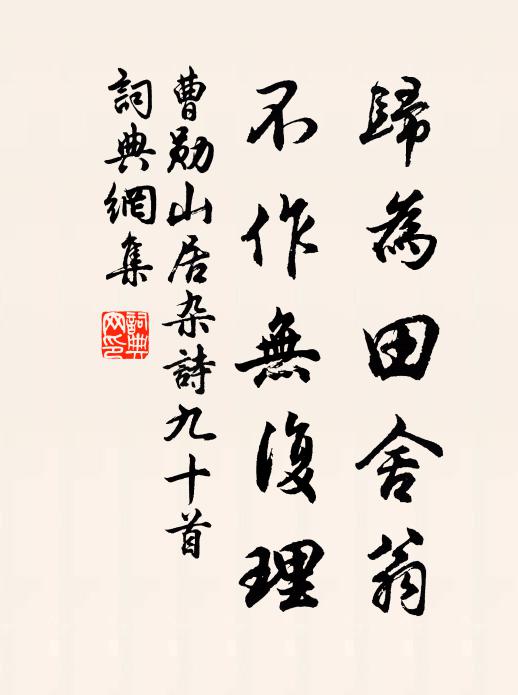 歸為田舍翁
不作無復理
曹勛山居杂詩九十首
詞典網集
詞典網印